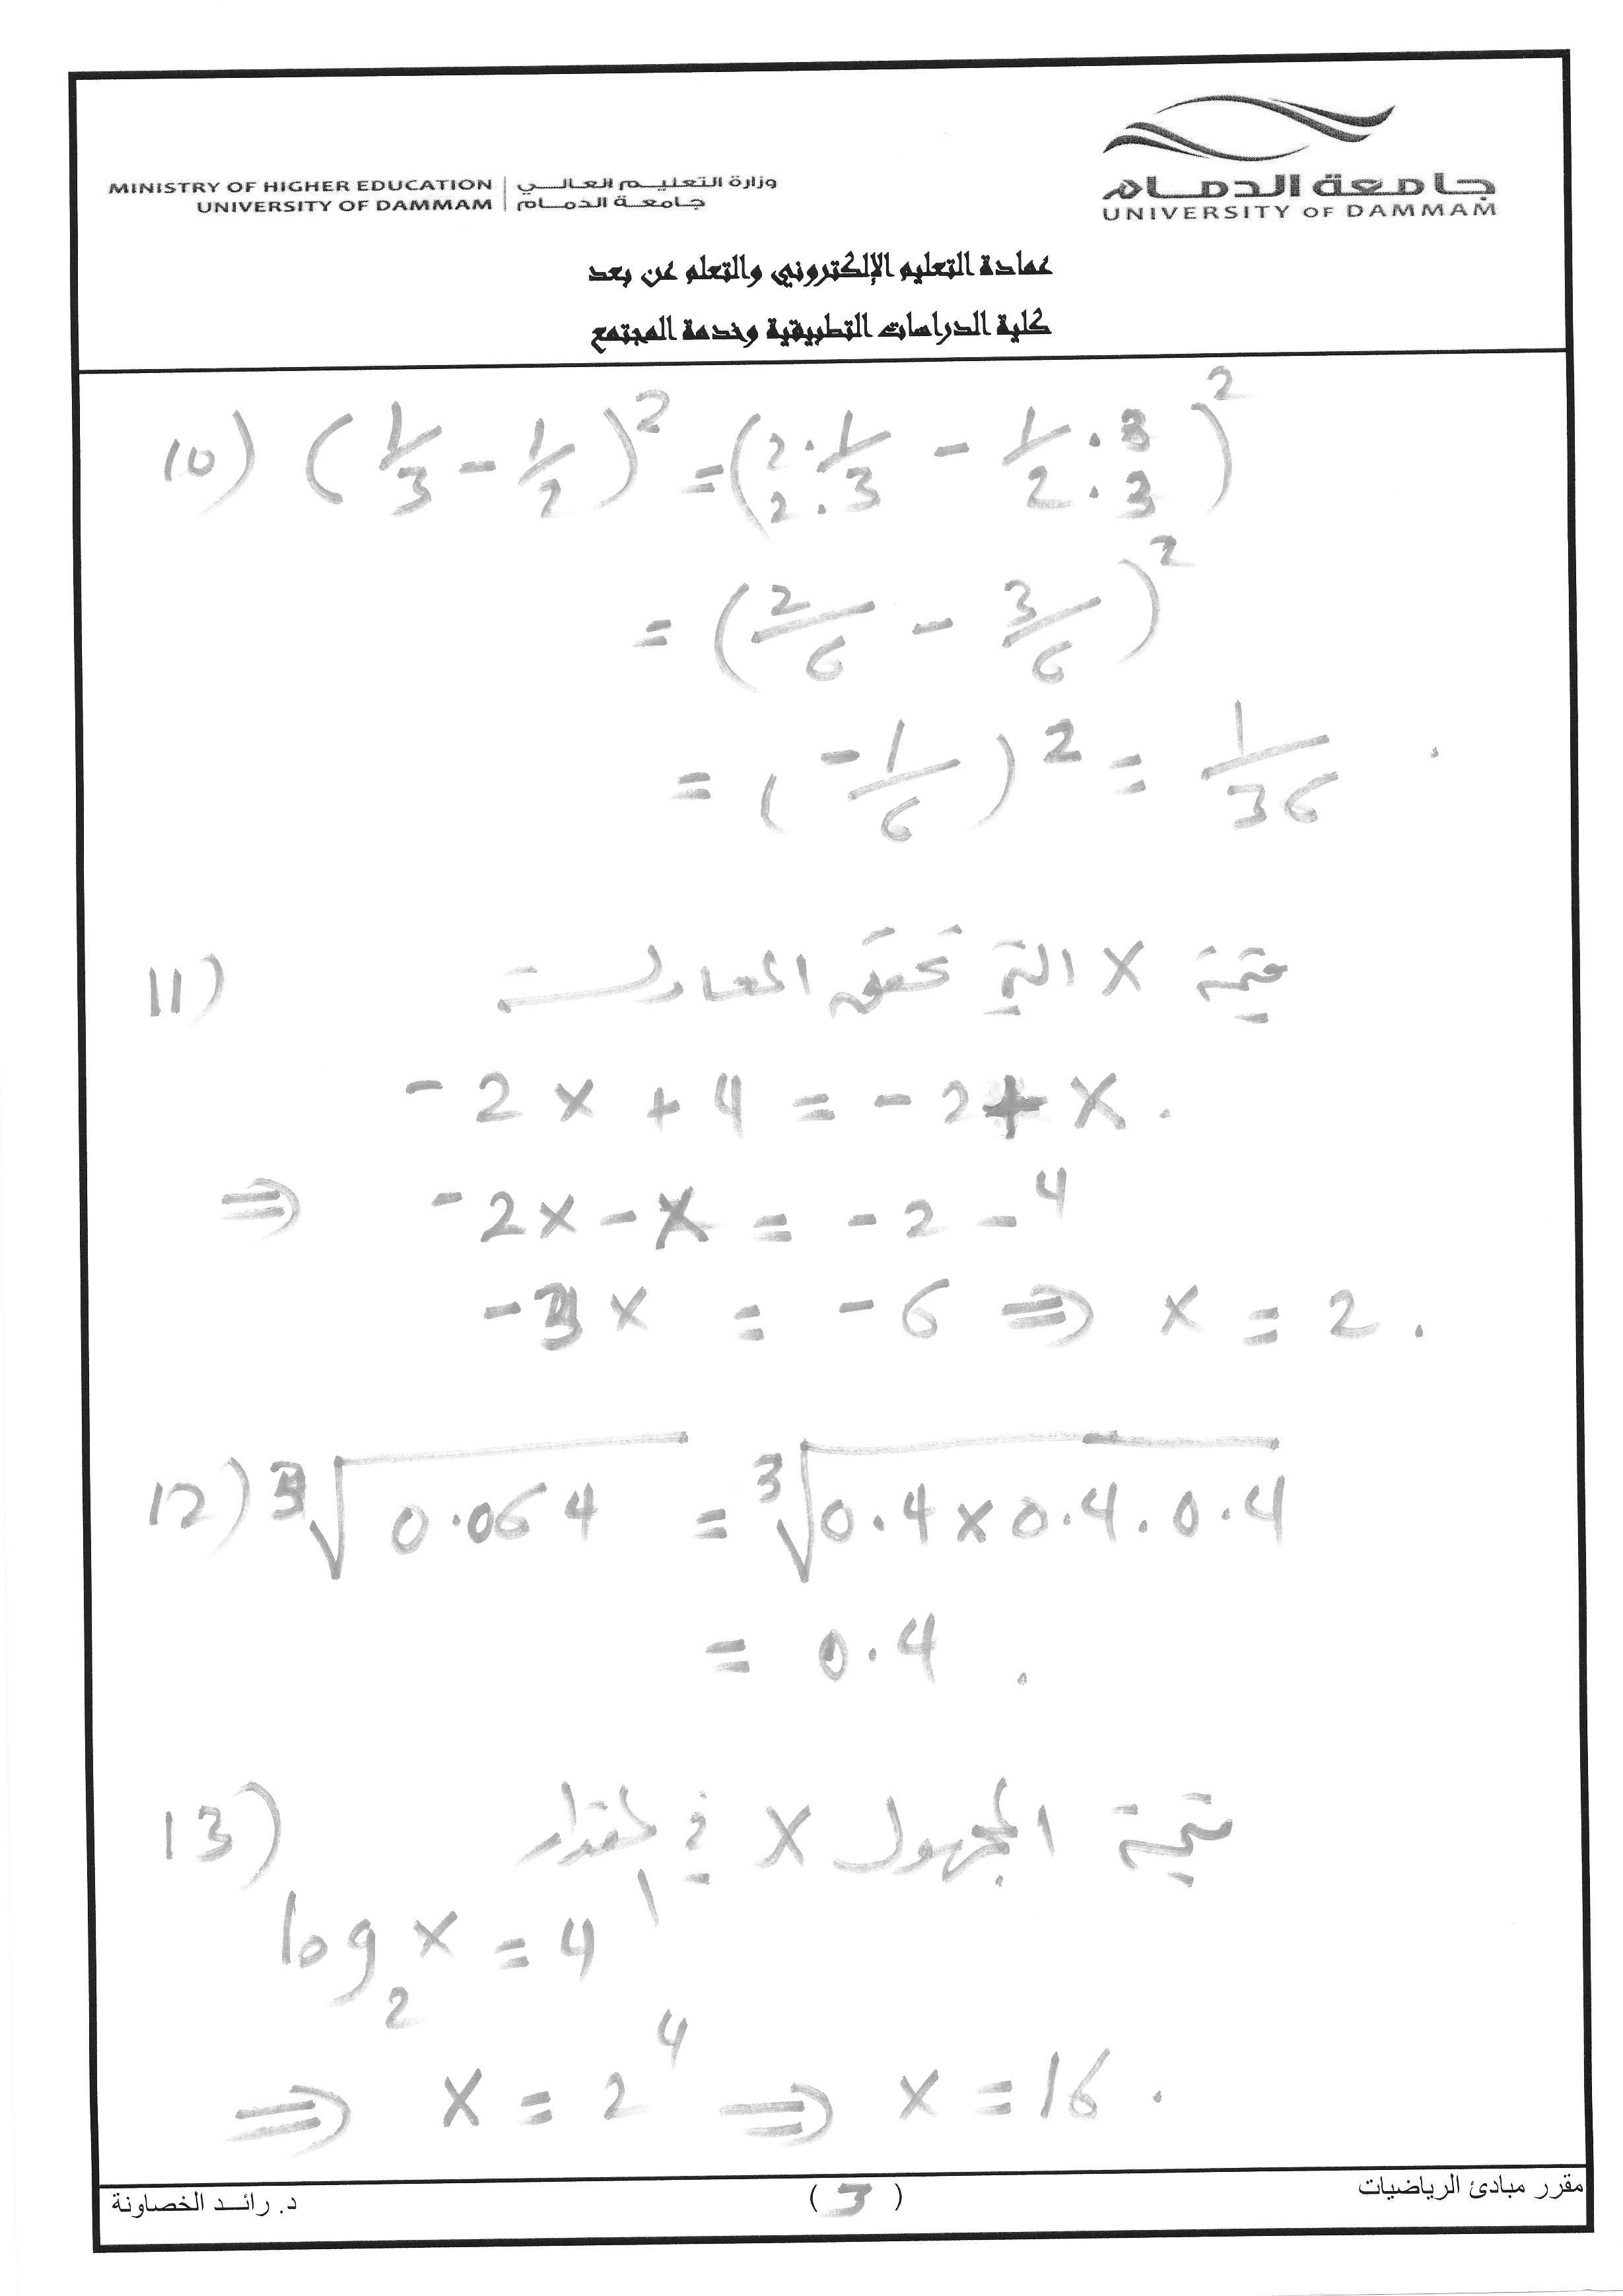 جامعة الدمام
UNIVERSITY OF DAMMAM
MINISTRY OF HIGHER EDUCATION | وزارة التعليم العالي
UNIVERSITY OF DAMMAM | جامعة الدمام
عمادة التعليم الإلكتروني والتعلم عن بعد
كلية الدراسات التطبيقية وخدمة المجتمع
10) (1/3 - 1/2)² = (2·1/2·3 - 1·3/2·3)²
= (2/6 - 3/6)²
= (-1/6)² = 1/36 .
11) قيمة X التي تحقق المعادلة
-2x + 4 = -2 + x .
⇒ -2x - x = -2 - 4
-3x = -6 ⇒ x = 2 .
12) ³√0.064 = ³√0.4 x 0.4 . 0.4
= 0.4 .
13) قيمة المجهول X في المقدار
log₂ x = 4
⇒ x = 2⁴ ⇒ x = 16 .
مقرر مبادئ الرياضيات (3) د. رائد الخصاونة